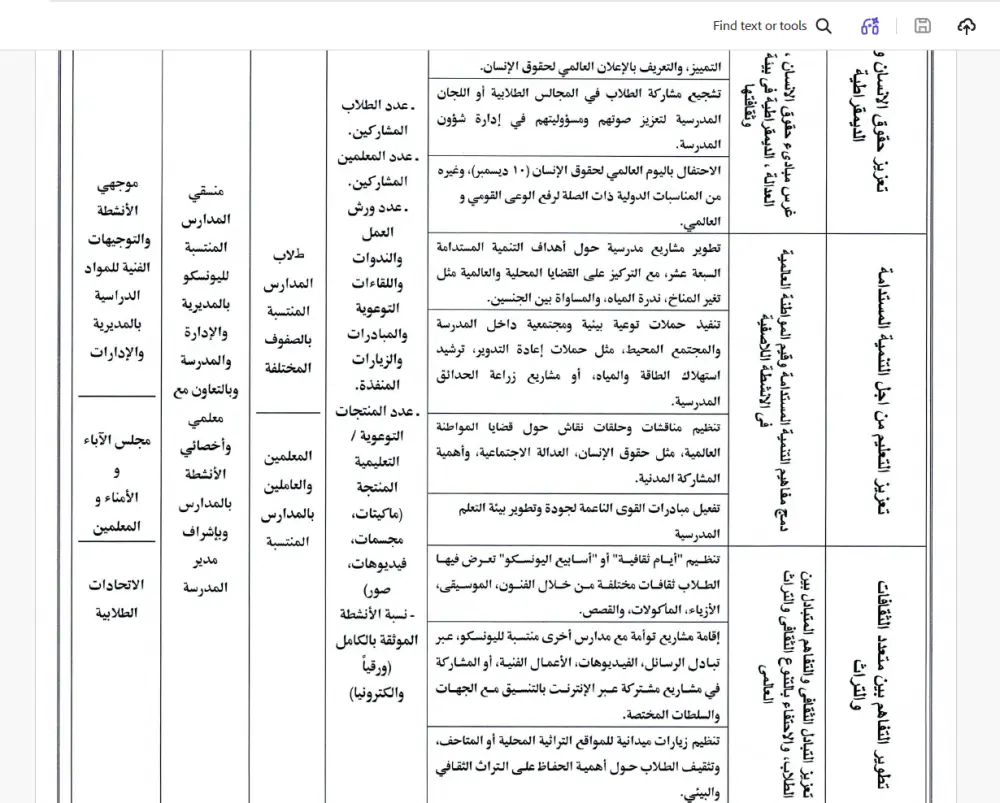 Find text or tools
تعزيز حقوق الانسان و
الديمقراطية
غرس مبادىء حقوق الانسان ،
العدالة ، الديمقراطية فى بيئة
وثقافتها
التمييز، والتعريف بالإعلان العالمي لحقوق الإنسان.
تشجيع مشاركة الطلاب في المجالس الطلابية أو اللجان
المدرسية لتعزيز صوتهم ومسؤوليتهم في إدارة شؤون
المدرسة.
الاحتفال باليوم العالمي لحقوق الإنسان (١٠ ديسمبر)، وغيره
من المناسبات الدولية ذات الصلة لرفع الوعى القومي و
العالمي.
تعزيز التعليم من اجل التنمية المستدامة
دمج مفاهيم التنمية المستدامة وقيم المواطنة العالمية
فى الانشطة اللاصفية
تطوير مشاريع مدرسية حول أهداف التنمية المستدامة
السبعة عشر، مع التركيز على القضايا المحلية والعالمية مثل
تغير المناخ، ندرة المياه، والمساواة بين الجنسين.
تنفيذ حملات توعية بيئية ومجتمعية داخل المدرسة
والمجتمع المحيط، مثل حملات إعادة التدوير، ترشيد
استهلاك الطاقة والمياه، أو مشاريع زراعة الحدائق
المدرسية.
تنظيم مناقشات وحلقات نقاش حول قضايا المواطنة
العالمية، مثل حقوق الإنسان، العدالة الاجتماعية، وأهمية
المشاركة المدنية.
تفعيل مبادرات القوى الناعمة لجودة وتطوير بيئة التعلم
المدرسية
تطوير التفاهم بين متعدد الثقافات
والتراث
تعزيز التبادل الثقافى والتفاهم المتبادل بين
الطلاب، والاحتفاء بالتنوع الثقافى والتراث
العالمى
تنظيم "أيام ثقافية" أو "أسابيع اليونسكو" تعرض فيها
الطلاب ثقافات مختلفة من خلال الفنون، الموسيقى،
الأزياء، المأكولات، والقصص.
إقامة مشاريع توأمة مع مدارس أخرى منتسبة لليونسكو، عبر
تبادل الرسائل، الفيديوهات، الأعمال الفنية، أو المشاركة
في مشاريع مشتركة عبر الإنترنت بالتنسيق مع الجهات
والسلطات المختصة.
تنظيم زيارات ميدانية للمواقع التراثية المحلية أو المتاحف،
وتثقيف الطلاب حول أهمية الحفاظ على التراث الثقافي
والبيئي.
. عدد الطلاب
المشاركين.
. عدد المعلمين
المشاركين.
. عدد ورش
العمل
والندوات
واللقاءات
التوعوية
والمبادرات
والزيارات
المنفذة.
. عدد المنتجات
التوعوية /
التعليمية
المنتجة
(ماكيتات،
مجسمات،
فيديوهات،
صور)
- نسبة الأنشطة
الموثقة بالكامل
(ورقياً
والكترونيا)
طلاب
المدارس
المنتسبة
بالصفوف
المختلفة
المعلمين
والعاملين
بالمدارس
المنتسبة
منسقي
المدارس
المنتسبة
لليونسكو
بالمديرية
والإدارة
والمدرسة
وبالتعاون مع
معلمي
وأخصائي
الأنشطة
بالمدارس
وبإشراف
مدير
المدرسة
موجهي
الأنشطة
والتوجيهات
الفنية للمواد
الدراسية
بالمديرية
والإدارات
مجلس الآباء
و
الأمناء و
المعلمين
الاتحادات
الطلابية